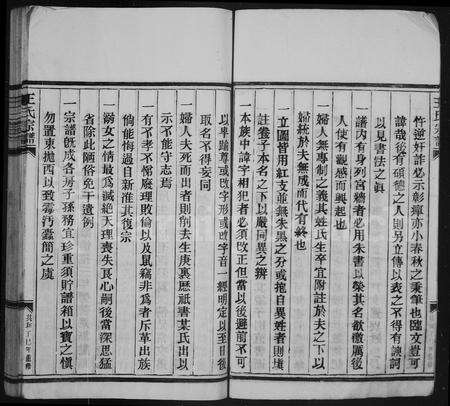 忤逆奸詐必示彰癉亦小春秋之秉筆也臨文豈可
諱哉後有碩德之人則另立傳以表之不得有諛詞
以見書法之眞
一譜內有身列宮牆者必用朱書以榮其名欲激厲後
人使有觀感而興起也
一婦人無專制之義其姓氏生卒宜附註於夫之下以
婦統於夫無成而代有終也
一立圖皆用紅支並無朱吳之分或抱自異姓者則墳
註養子本名之下以嚴同異之辨
一本族中諱字相犯者必須改正但當以後避前不可
以卑踰尊或改字形或改字音一經明定以至日後
取名不得妄同
一婦人夫死而出者則削去生庚裏歷祇書某氏出以
示不能守志焉
一有不孝不悌廢理敗倫以及鼠竊非為者斥革出族
倘能悔過自新准其復宗
一溺女之情最為慘滅絕天理喪失良心嗣後當深思猛
省除此陋俗免干遺例
一宗譜旣成各房子孫務宜珍重須貯譜箱以寶之愼
勿置東抛西以致霉汚蠹簡之虞
王氏宗譜